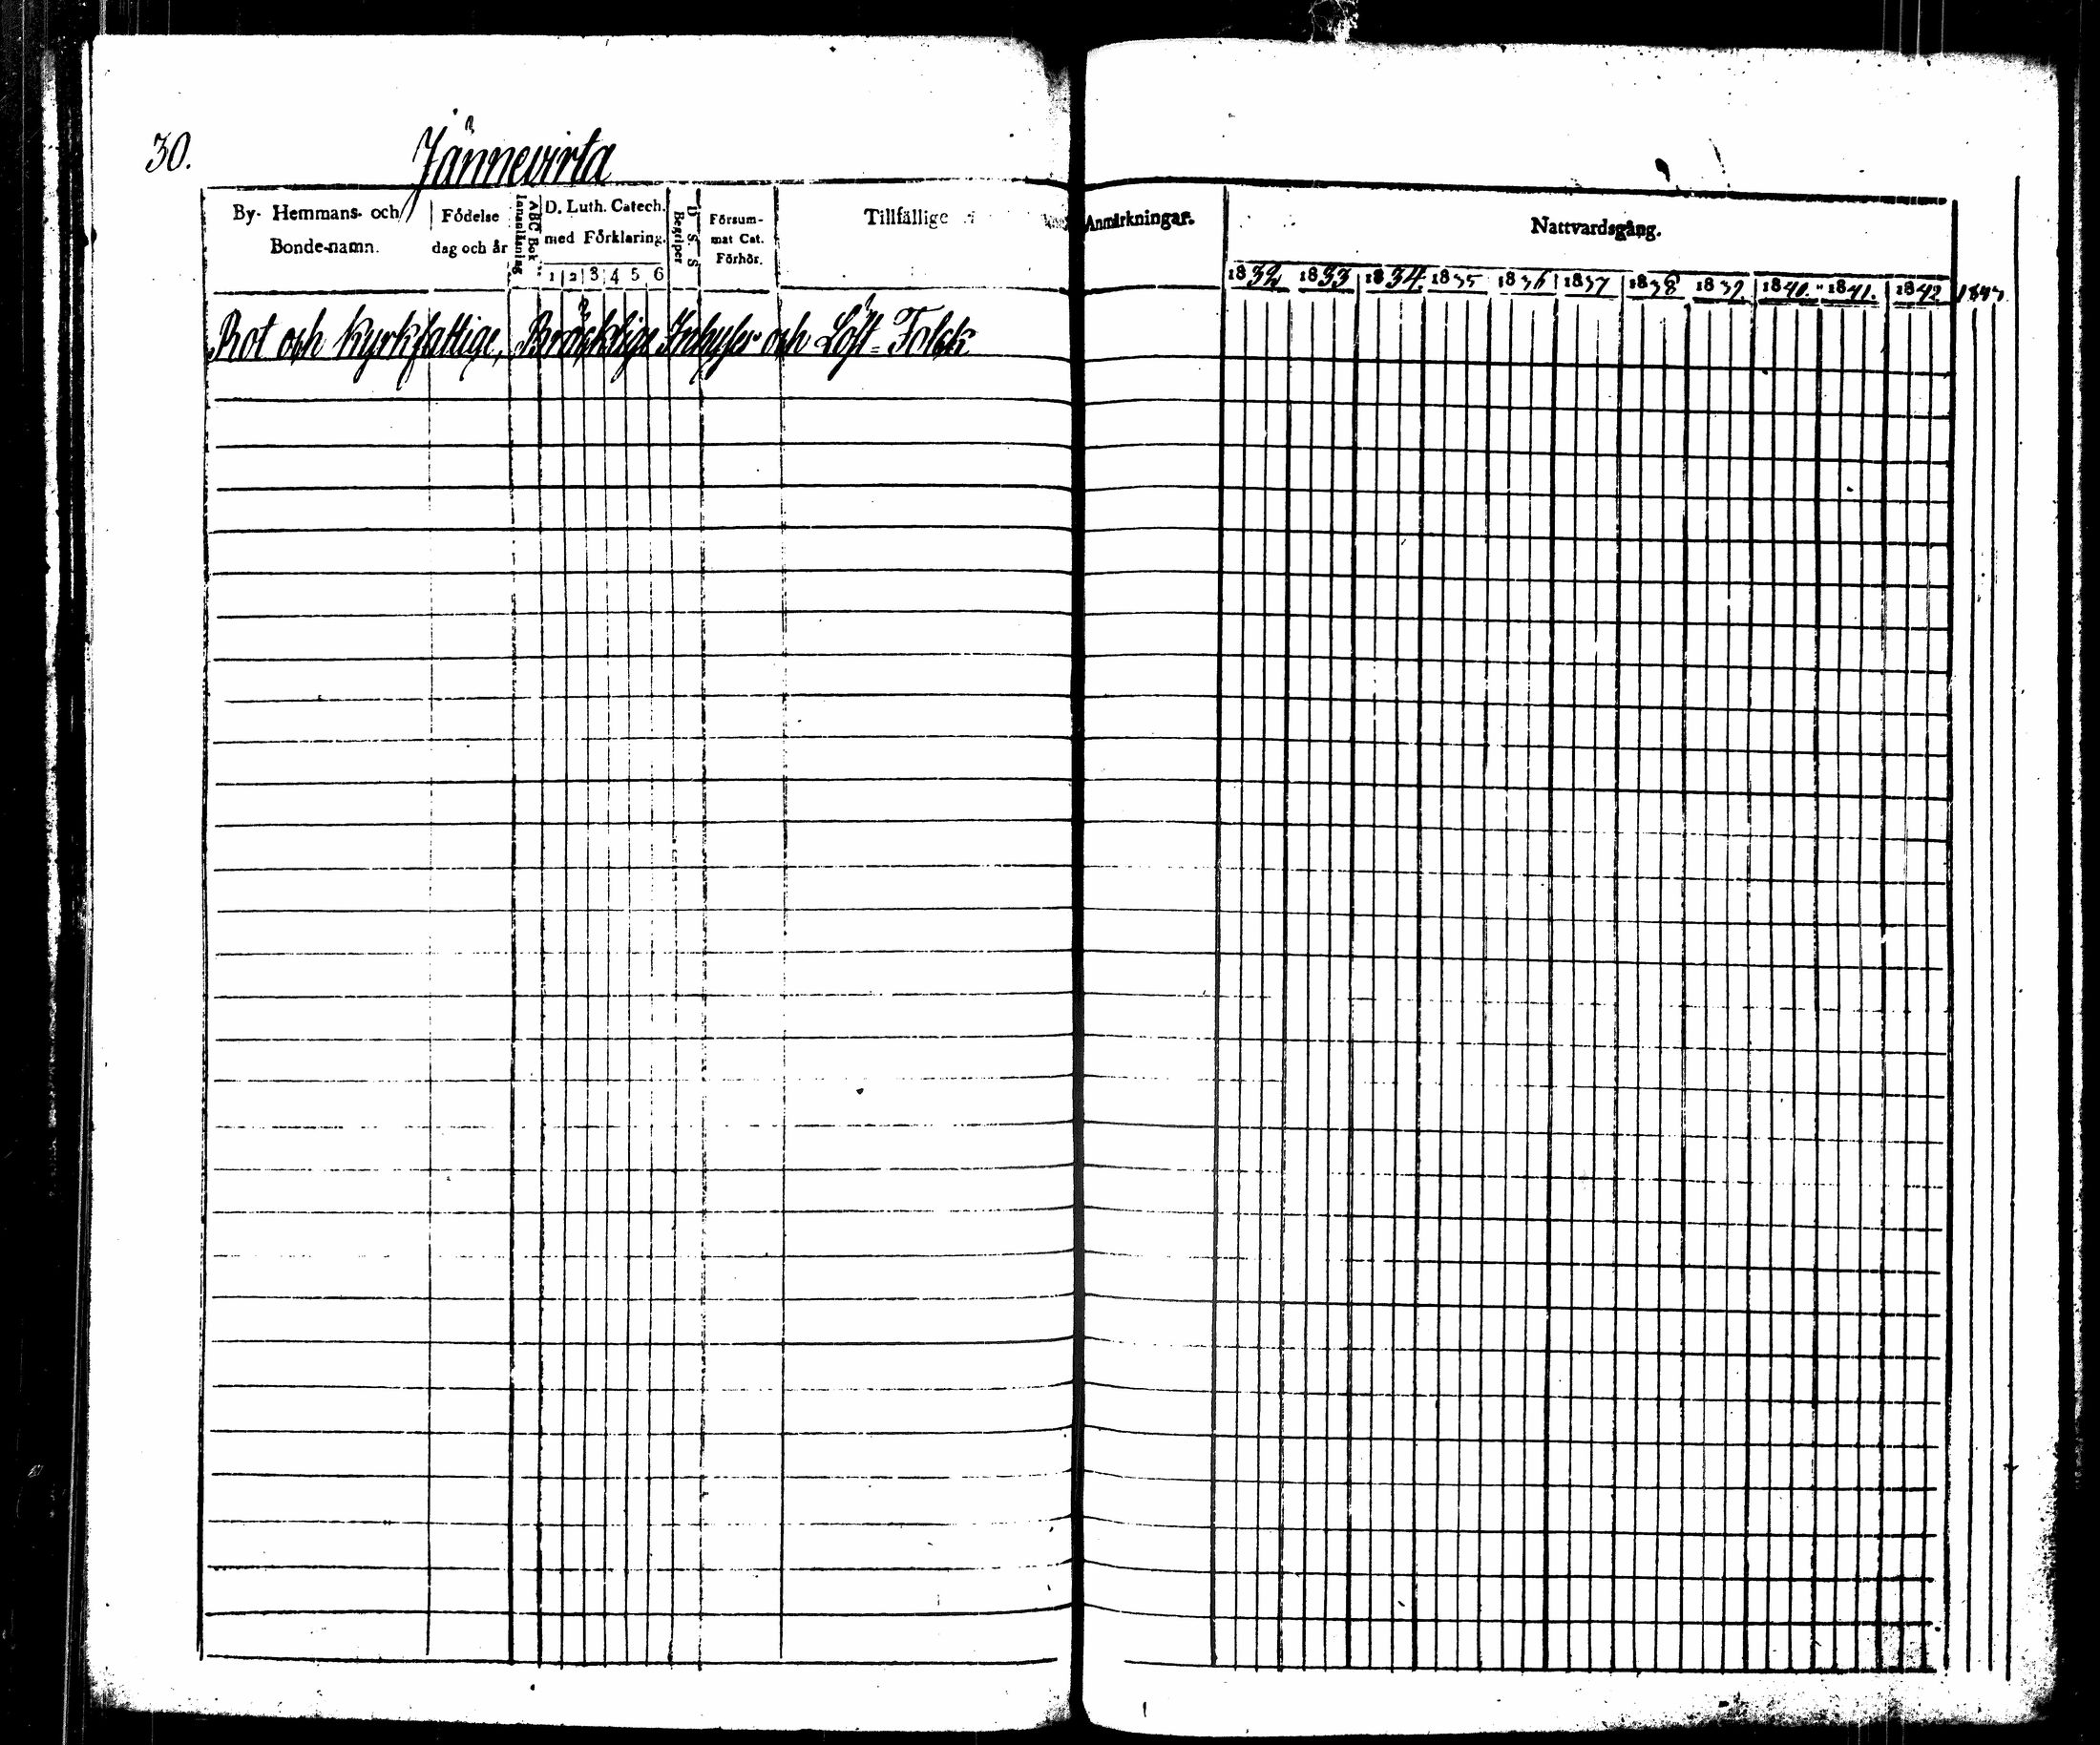 30.
Jännevirta
By- Hemmans- och
Bonde-namn.
Födelse
dag och år
Innanläsning
ABC Bok
D. Luth. Catech.
med Förklaring.
1 2 3 4 5 6
D. S. S
Begriper
Försum-
mat Cat.
Förhör.
Tillfällige
Anmärkningar.
Nattvardsgång.
1832 1833 1834. 1835 1836 1837 1838 1839. 1840. 1841. 1842 1843
Rot och Kyrkfattige, Bräcklige Inhyses och Löst=Folck